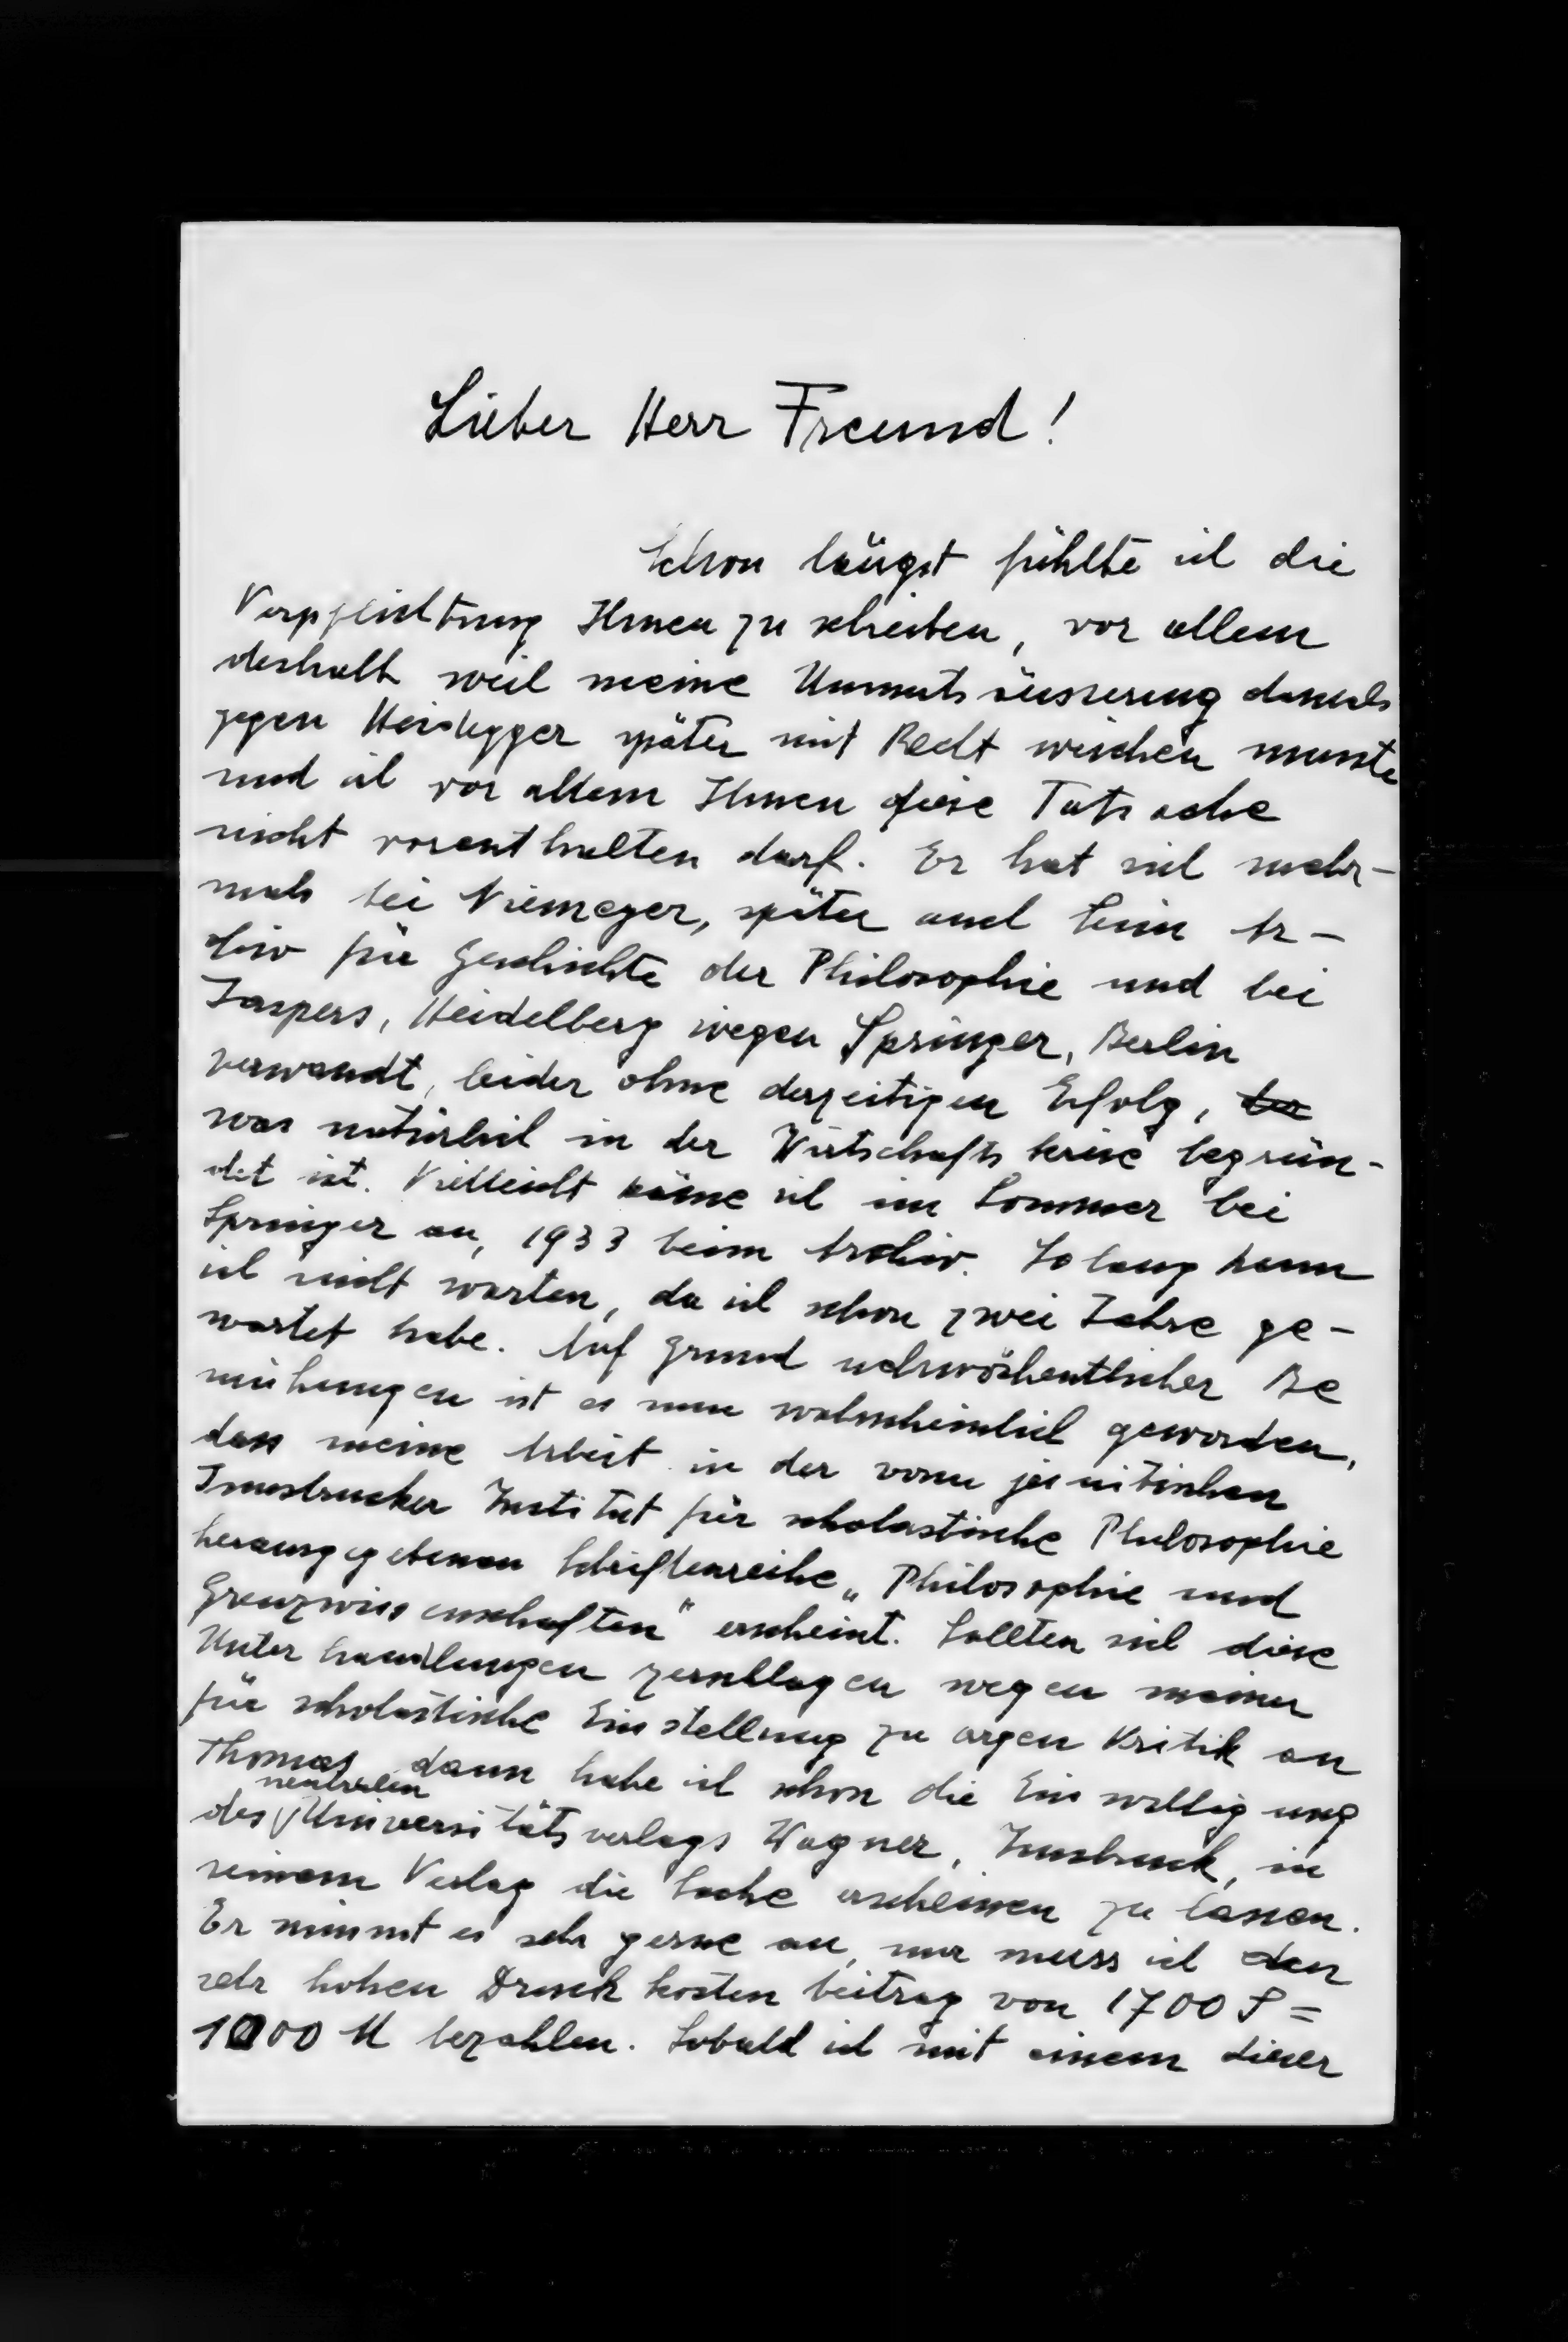 Lieber Herr Freund!
Schon längst fühlte ich die
Verpflichtung Ihnen zu schreiben, vor allem
deshalb weil meine Unmutsäusserung damals
gegen Heidegger später mit Recht weichen musste
und ich vor allem Ihnen diese Tatsache
nicht vorenthalten darf. Er hat sich mehr-
mals bei Niemeyer, später auch beim Ar-
chiv für Geschichte der Philosophie und bei
Jaspers, Heidelberg wegen Springer, Berlin
verwandt, leider ohne derzeitigen Erfolg,
was natürlich in der Wirtschaftskrise begrün-
det ist. Vielleicht käme ich im Sommer bei
Springer an, 1933 beim Archiv. So lang kann
ich nicht warten, da ich schon zwei Jahre ge-
wartet habe. Auf Grund mehrwöchentlicher Be
mühungen ist es nun wahrscheinlich geworden,
dass meine Arbeit in der vom jesuitischen
Innsbrucker Institut für scholastische Philosophie
herausgegebenen Schriftenreihe „Philosophie und
Grenzwissenschaften" erscheint. Sollten sich diese
Unterhandlungen zerschlagen wegen meiner
für scholastische Einstellung zu argen Kritik an
Thomas, dann habe ich schon die Einwilligung
des neutralen Universitätsverlags Wagner, Innsbruck, in
seinem Verlag die Sache erscheinen zu lassen.
Er nimmt es sehr gerne an, nur muss ich den
sehr hohen Druckkostenbeitrag von 1700 S =
1000 M bezahlen. Sobald ich mit einem dieser